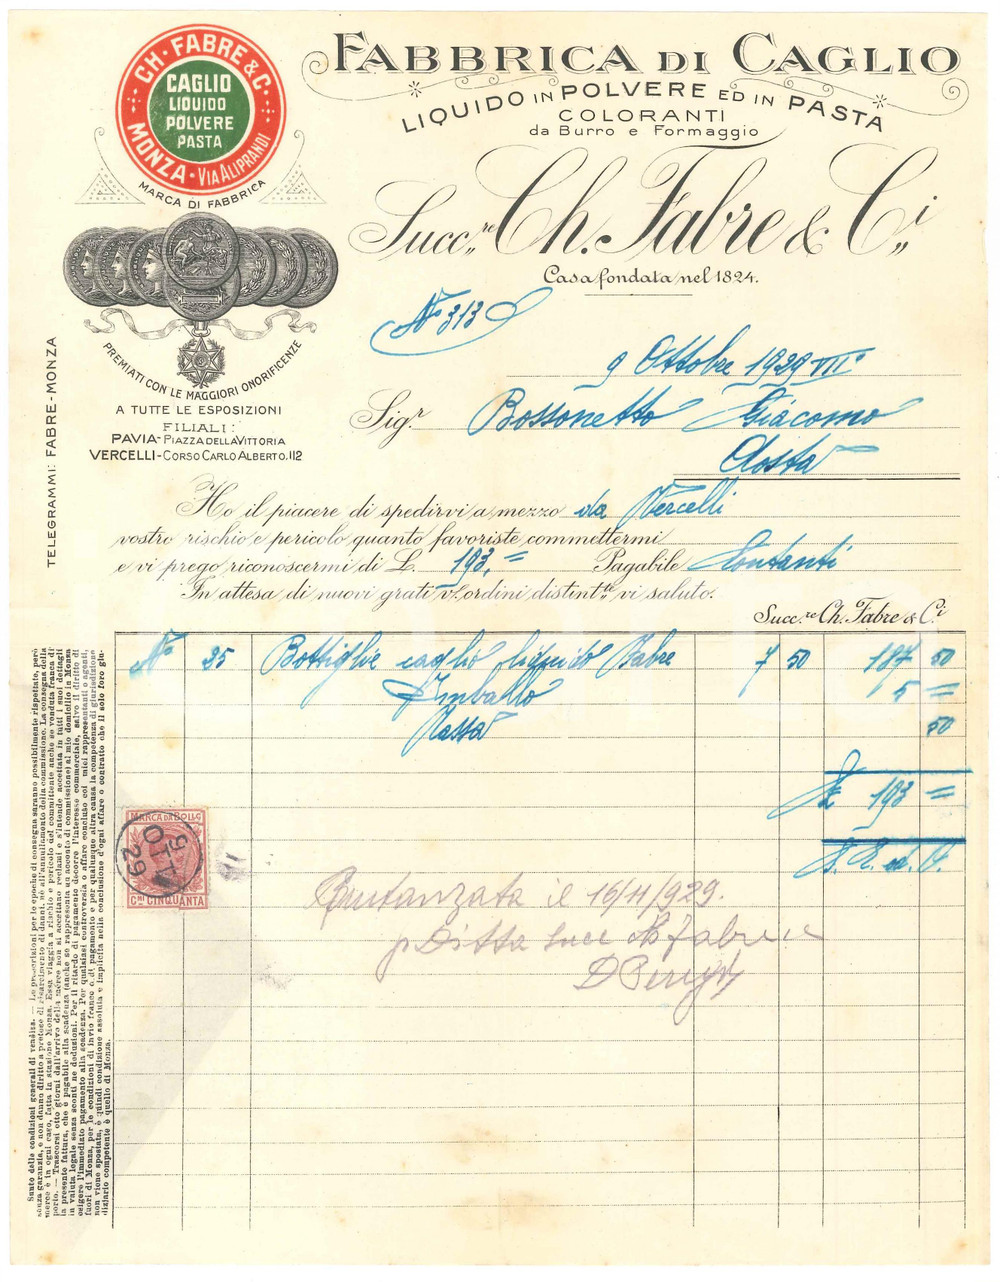 CH. FABRE & C.
CAGLIO
LIQUIDO
POLVERE
PASTA
MONZA - VIA ALIPRANDI
MARCA DI FABBRICA
PREMIATI CON LE MAGGIORI ONORIFICENZE
A TUTTE LE ESPOSIZIONI
FILIALI:
PAVIA - PIAZZA DELLA VITTORIA
VERCELLI - CORSO CARLO ALBERTO. 112
TELEGRAMMI: FABRE - MONZA
FABBRICA DI CAGLIO
LIQUIDO IN POLVERE ED IN PASTA
COLORANTI
da Burro e Formaggio
Succ.re Ch. Fabre & C.i
Casa fondata nel 1824.
No 313
9 Ottobre 1929 VII°
Sig.r Bossonetto Giacomo
Aosta
Ho il piacere di spedirvi a mezzo da Vercelli
vostro rischio e pericolo quanto favoriste commettermi
e vi prego riconoscermi di L. 193,= Pagabile Contanti
In attesa di nuovi grati vs. ordini distint.te vi saluto.
Succ.re Ch. Fabre & C.i
No 25 Bottiglie caglio liquido Fabre 7 50 187 50
Imballo 5 =
Tassa 50
£ 193 =
S. E. ed O.
MARCA DA BOLLO
9 OTT 29
C.mi CINQUANTA
Quitanzata il 16/11/929.
p Ditta Succ Ch Fabre e C
Sunto delle condizioni generali di vendita. — Le prescrizioni per le epoche di consegna saranno possibilmente rispettate, però
senza garanzia, e non danno diritto a pretese di risarcimento di danni, nè all'annullamento della commissione. La consegna della
merce è in ogni caso, fatta in stazione Monza. Essa viaggia a rischio e pericolo del committente anche se venduta franca di
porto. — Trascorsi otto giorni dall'arrivo della merce non si accettano reclami e s'intende accettata in tutti i suoi dettagli
la presente fattura, che è pagabile alla scadenza (anche se rappresenta un acconto di commissione) al mio domicilio in Monza
in valuta legale senza sconti nè deduzioni. Per il ritardo di pagamento decorre l'interesse commerciale, salvo il diritto di
esigere l'immediato pagamento alla scadenza. Per qualsiasi controversia o affare concluso coi miei rappresentanti o agenti,
fuori di Monza, per le condizioni di invio franco o di pagamento e per qualunque altra causa la competenza di giurisdizione
non viene spostata, è quindi condizione assoluta e implicita nella conclusione d'ogni affare o contratto che il solo foro giu-
diziario competente è quello di Monza.